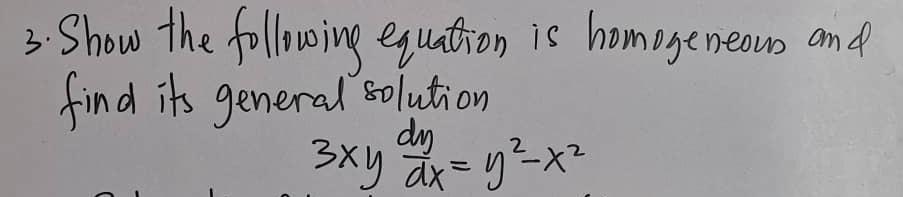 3. Show the following equation is homogeneous and
find its general solution
3xy dy/dx = y²-x²